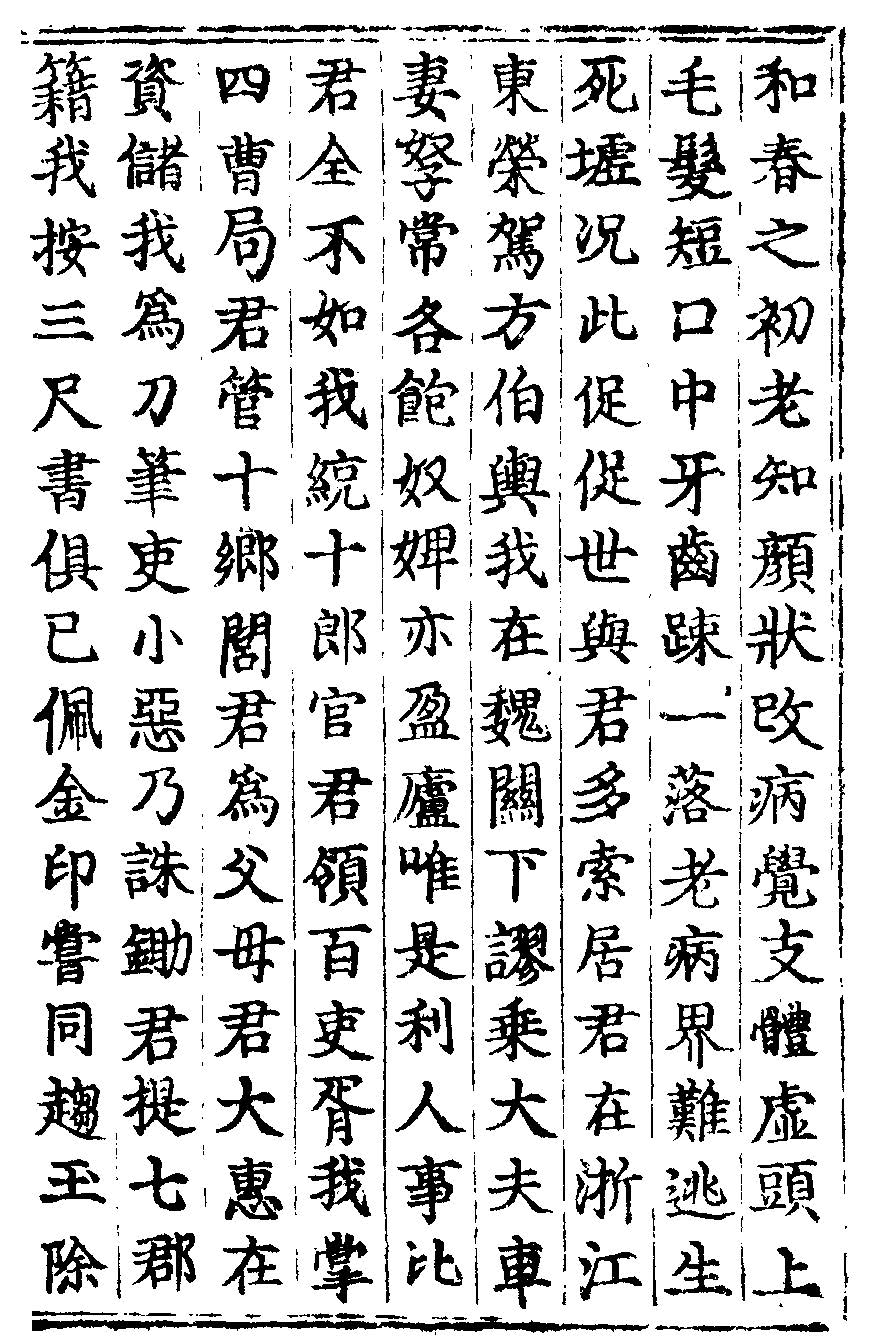 和春之初老知顏狀改病覺支體虛頭上
毛髮短口中牙齒踈一落老病界難逃生
死墟况此促促世與君多索居君在浙江
東榮駕方伯輿我在魏闕下謬乗大夫車
妻孥常各飽奴婢亦盈廬唯是利人事比
君全不如我統十郎官君領百吏胥我掌
四曹局君管十鄉閭君爲父母君大惠在
資儲我爲刀筆吏小惡乃誅鋤君提七郡
籍我按三尺書俱已佩金印嘗同趨玉除